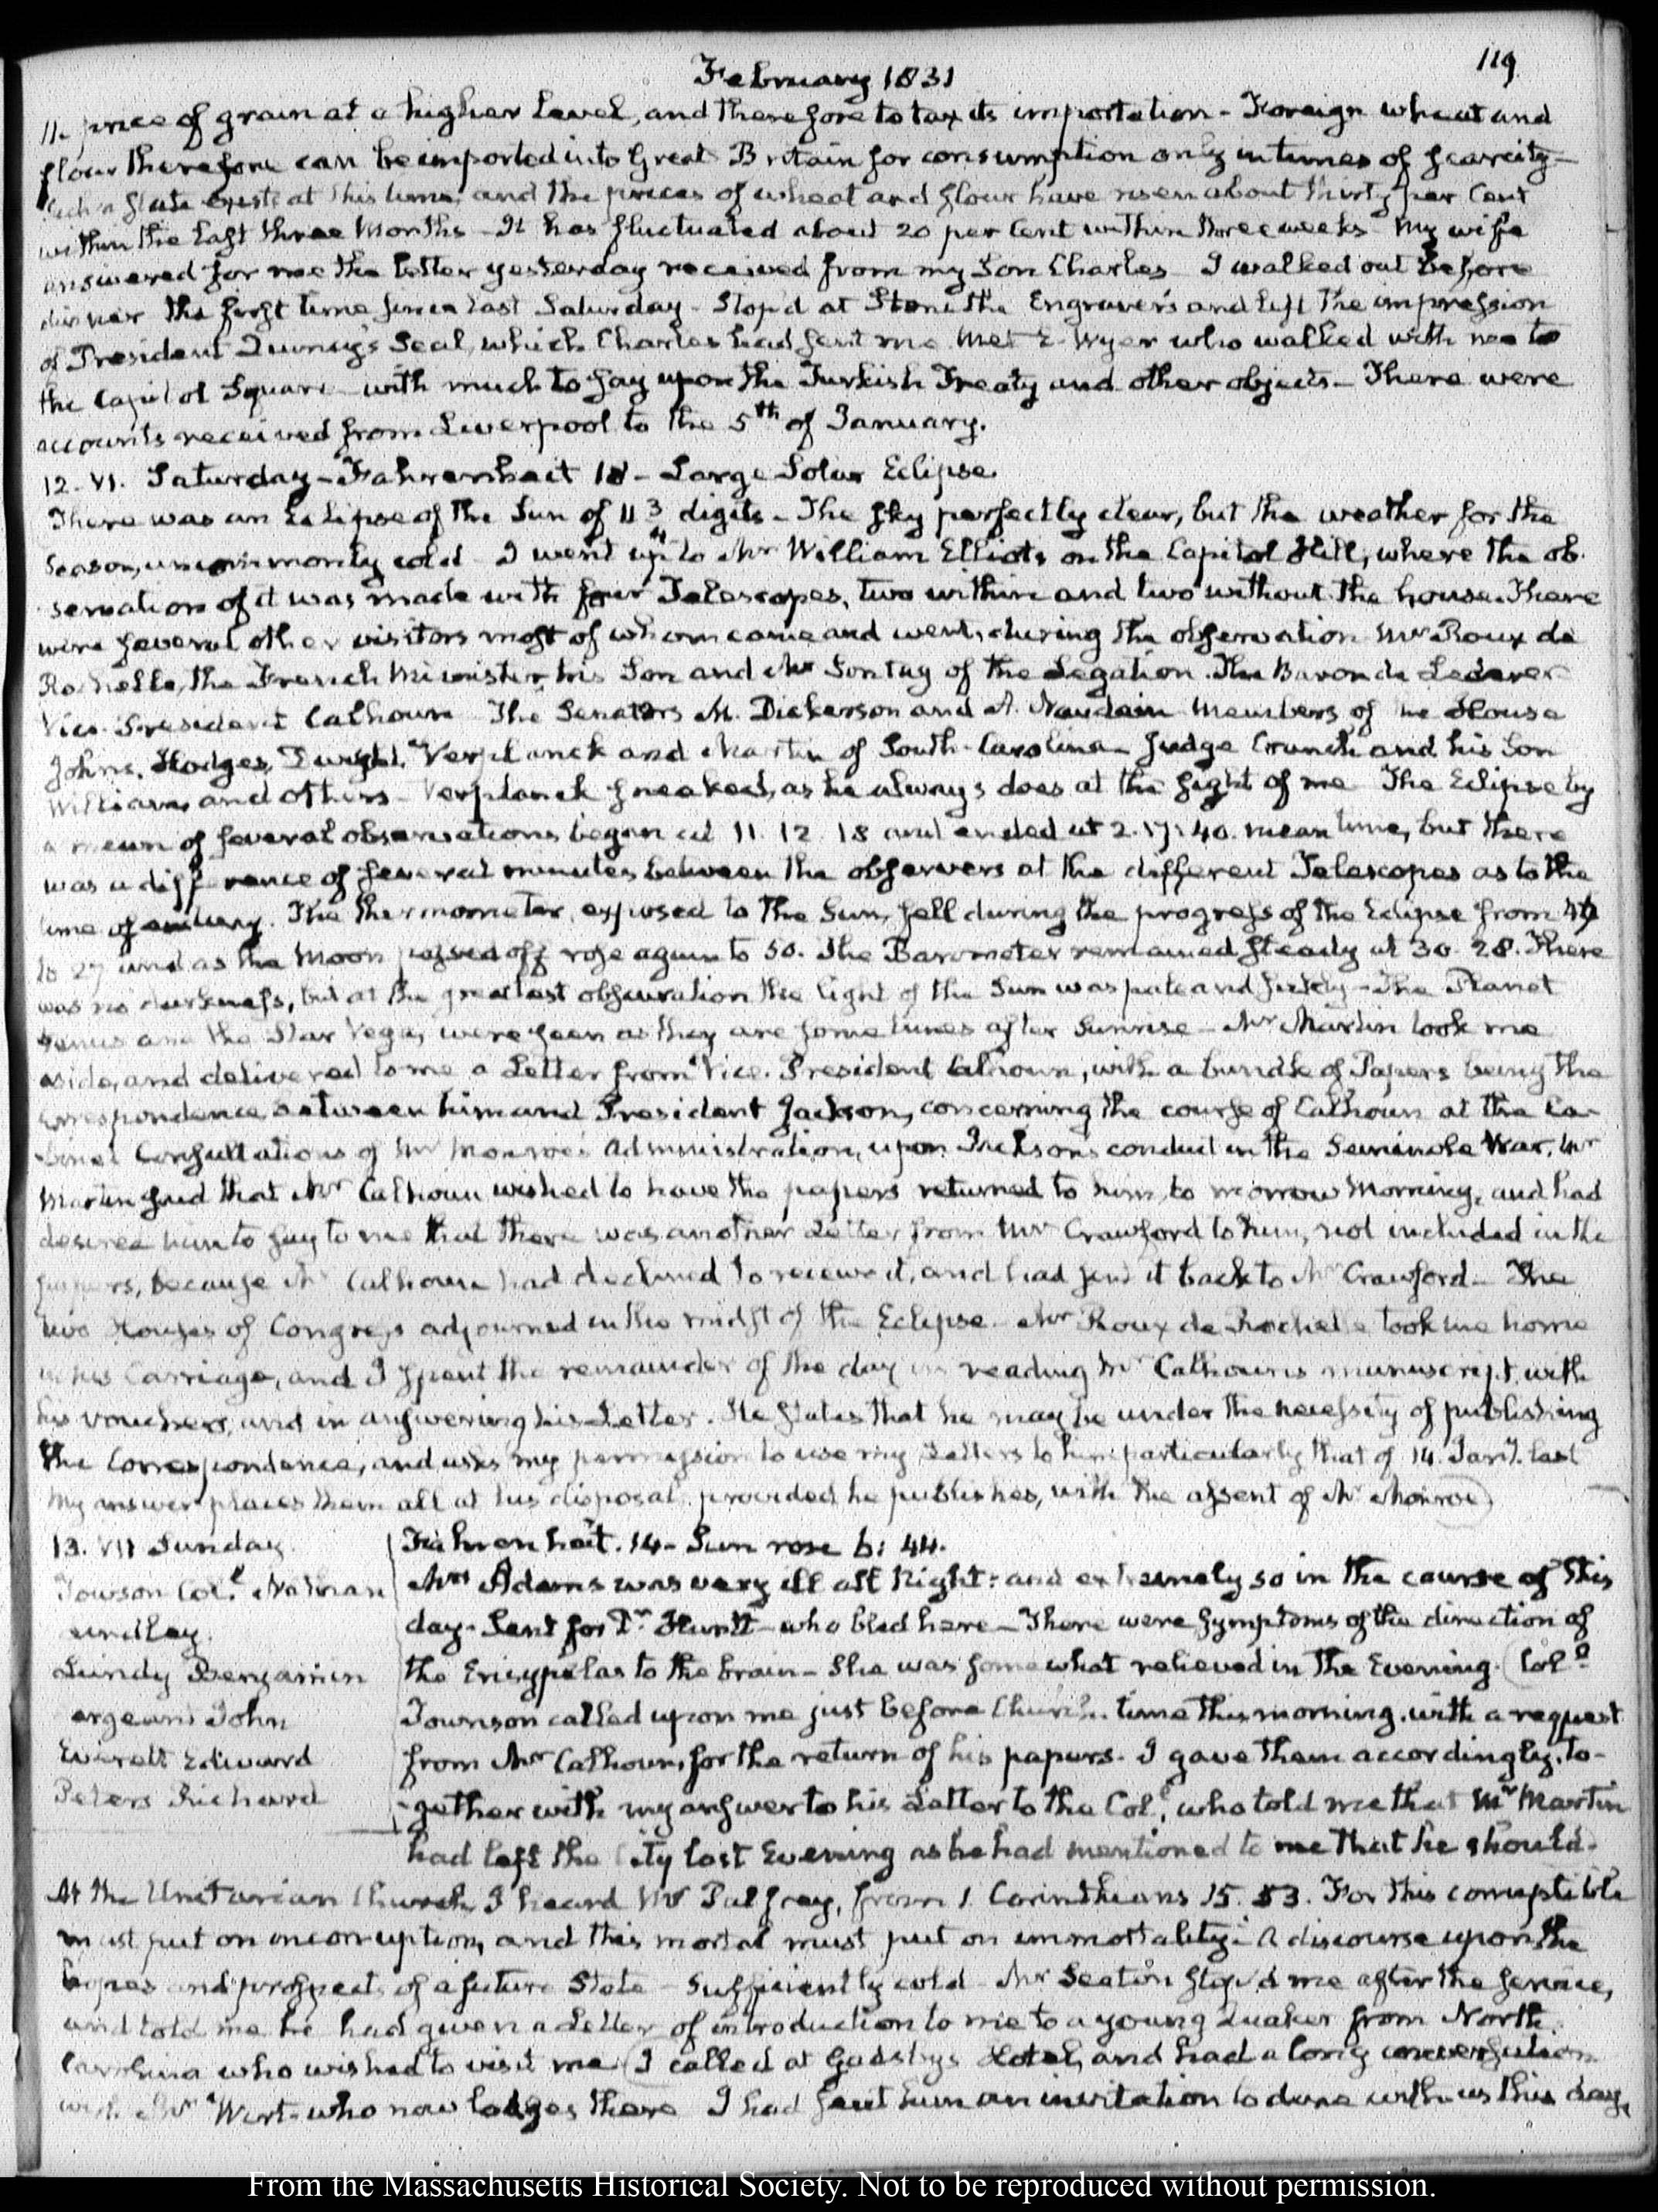 119
February 1831
11. price of grain at a higher level, and therefore to tax its importation - Foreign wheat and
flour therefore can be imported into Great Britain for consumption only in times of scarcity -
such a state exists at this time, and the prices of wheat and flour have risen about thirty per Cent
within the last three Months - It has fluctuated about 20 per Cent within three weeks - My wife
answered for me the letter yesterday received from my Son Charles - I walked out before
dinner the first time since last Saturday - Stop'd at Stone the Engraver's and left the impression
of President Quincy's Seal, which Charles had sent me. Met E. Wyer who walked with me to
the Capitol Square - with much to say upon the Turkish Treaty and other objects - There were
accounts received from Liverpool to the 5th of January.
12. VI. Saturday - Fahrenheit 18 - Large Solar Eclipse.
There was an Eclipse of the Sun of 11 3/4 digits - The sky perfectly clear, but the weather for the
Season, uncommonly cold - I went up to Mr William Elliot's on the Capitol Hill, where the ob-
servation of it was made with four Telescopes, two within and two without the house. There
were several other visitors most of whom came and went, during the observation Mr Roux de
Rochelle, the French Minister, his Son and Mr Sontag of the Legation. The Baron de Lederer
Vice-President Calhoun - The Senators M. Dickerson and A. Naudain - Members of the House
Johns, Hodges, Dwight, Verplanck and Martin of South-Carolina - Judge Cranch and his Son
William, and others - Verplanck sneaked, as he always does at the sight of me - The Eclipse by
a mean of several observations began at 11. 12. 18 and ended at 2. 17: 40. mean time, but there
was a difference of several minutes between the observers at the different Telescopes as to the
time of ending. The thermometer, exposed to the Sun, fell during the progress of the Eclipse from
to 27 and as the Moon passed off rose again to 50. The Barometer remained steady at 30. 28. There
was no darkness, but at the greatest obscuration the light of the Sun was pale and sickly - The Planet
Venus and the Star Vega, were seen as they are sometimes after Sunrise - Mr Martin took me
aside, and delivered to me a Letter from Vice-President Calhoun, with a bundle of Papers being the
correspondence between him and President Jackson, concerning the course of Calhoun at the Ca-
binet Consultations of Mr Monroe's Administration, upon Jackson's conduct in the Seminole War. Mr
Martin said that Mr Calhoun wished to have the papers returned to him, to morrow Morning, and had
desired him to say to me that there was another Letter from Mr Crawford to him, not included in the
papers, because Mr Calhoun had declined to receive it, and had sent it back to Mr Crawford - The
two Houses of Congress adjourned in the midst of the Eclipse - Mr Roux de Rochelle took me home
in his Carriage, and I spent the remainder of the day in reading Mr Calhoun's manuscript, with
his vouchers, and in answering his Letter. He states that he may be under the necessity of publishing
the Correspondence, and asks my permission to use my Letters to him particularly that of 14. Jany. last
My answer places them all at his disposal, provided he publishes, with the assent of Mr Monroe
13. VII Sunday.
Towson Coll. Nathan
Lundy Benjamin
Everett Edward
Peters Richard
Fahrenheit. 14 - Sun rose 6: 44.
Mrs Adams was very ill all Night: and extremely so in the course of this
day. Sent for Dr Huntt - who bled here - There were symptoms of the direction of
the Erisypelas to the brain - She was somewhat relieved in the Evening. Coll.
Townson called upon me just before Church time this morning, with a request
from Mr Calhoun, for the return of his papers. I gave them accordingly, to-
-gether with my answer to his Letter to the Coll. who told me that Mr Martin
had left the City last Evening as he had mentioned to me that he should -
At the Unitarian Church, I heard Mr Palfrey, from 1. Corinthians 15. 53. For this corruptible
must put on incorruption, and this mortal must put on immortality: A discourse upon the
hopes and prospects of a future State - Sufficiently cold - Mr Seaton stop'd me after the service,
and told me he had given a Letter of introduction to me to a young Quaker from North
Carolina who wished to visit me (I called at Gadsby's Hotel, and had a long conversation
with Mr Wirt - who now lodges there - I had sent him an invitation to dine with us this day,
From the Massachusetts Historical Society. Not to be reproduced without permission.